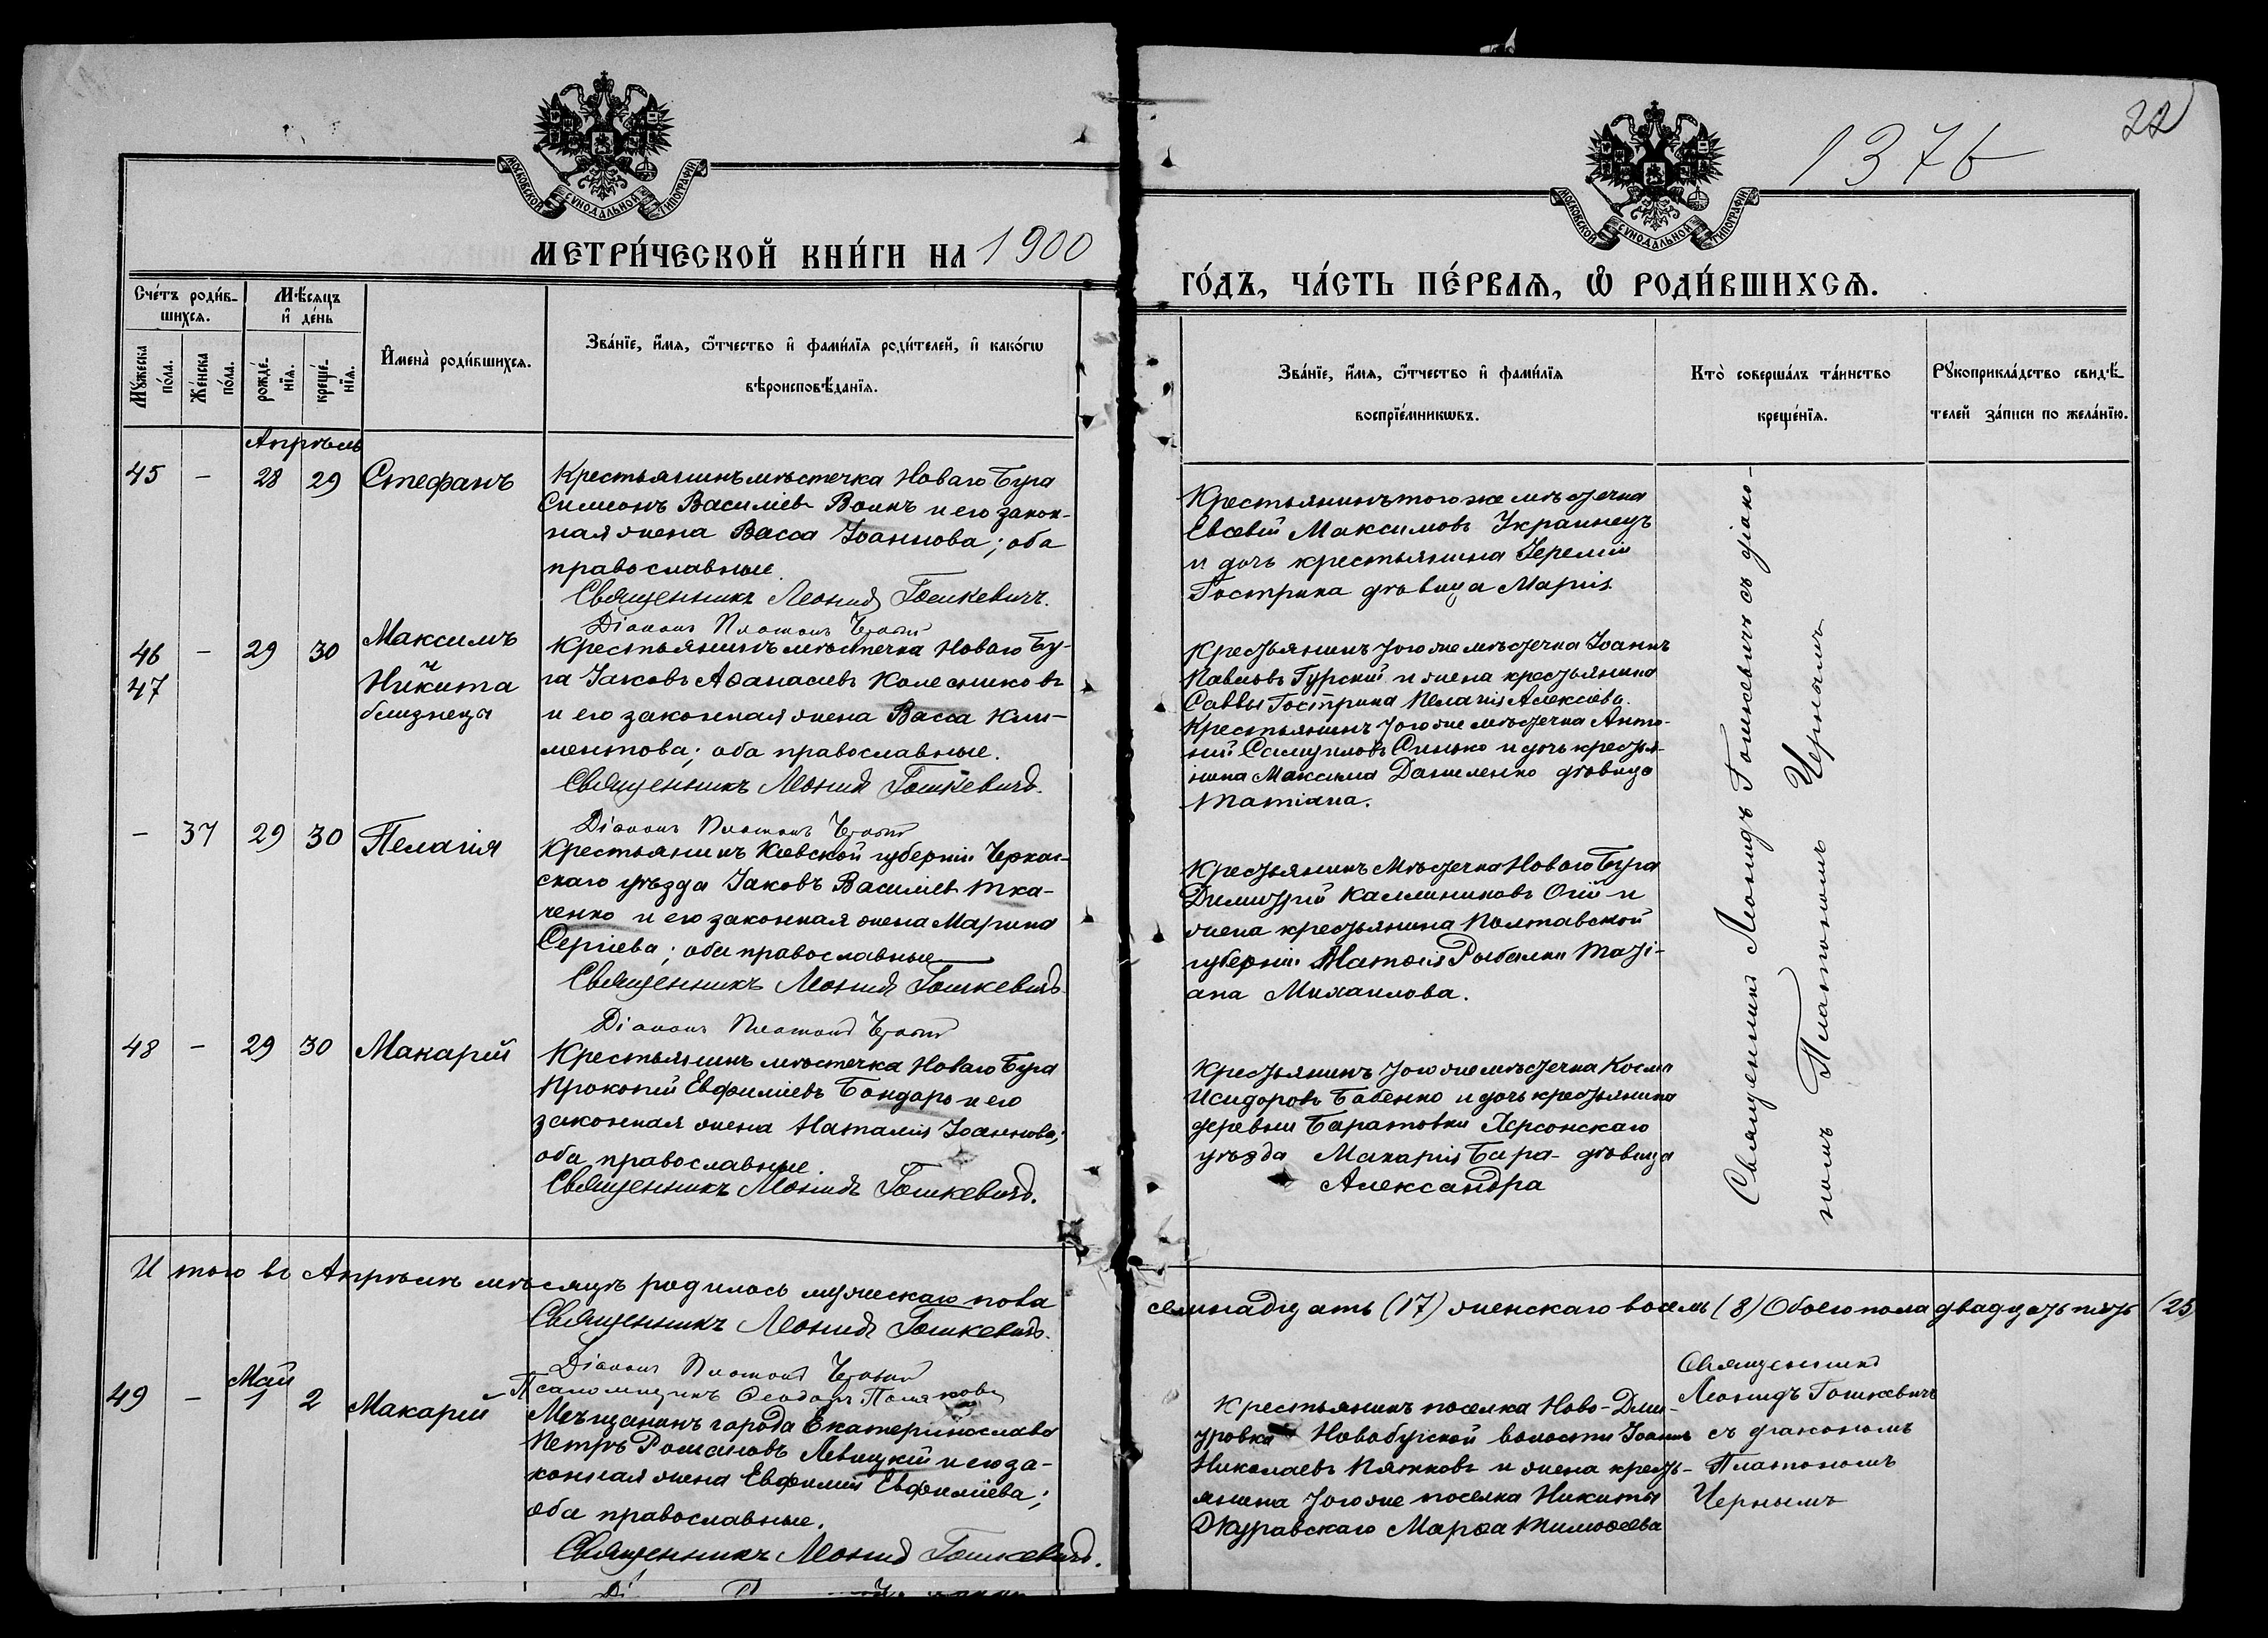 22
1376
МОСКОВСКОЙ СѴНОДАЛЬНОЙ ТИПОГРАФІИ
МОСКОВСКОЙ СѴНОДАЛЬНОЙ ТИПОГРАФІИ
МЕТРИ́ЧЕСКОЙ КНИ́ГИ НА 1900
ГО́ДЪ, ЧА́СТЬ ПЕ́РВАЯ, Ѡ҆ РОДИ́ВШИХСЯ.
Сче́тъ роди́в-
шихся.
Мѣ́сяцъ
и҆ де́нь
Мꙋ́жеска
по́ла.
Же́нска
по́ла.
рожде́-
нїя.
креще́-
нїя.
И҆мена̀ роди́вшихся.
Зва́нїе, и҆́мя, ѻ҆́тчество и҆ фами́лїя роди́телей, и҆ како́гѡ
вѣроисповѣ́данїя.
Зва́нїе, и҆́мя, ѻ҆́тчество и҆ фами́лїя
воспрїе́мникѡвъ.
Кто̀ соверша́лъ та́инство
креще́нїя.
Рꙋкоприкла́дство свидѣ́-
телей за́писи по жела́нїю.
Апрѣль
45 - 28 29 Стефанъ
Крестьянинъ мѣстечка Новаго Буга
Симеонъ Василіевъ Воинъ и его закон-
ная жена Васса Іоаннова; оба
православные.
Священникъ Леонидъ Гошкевичъ.
Діаконъ Платонъ Черный
Крестьянинъ того же мѣстечка
Евсевій Максимовъ Украинецъ
и дочь крестьянина Іереміи
Гострика дѣвица Марія.
46 - 29 30 Максимъ
47 и
Никита
близнецы
Крестьянинъ мѣстечка Новаго Бу-
га Іаковъ Аѳанасіевъ Колесниковъ
и его законная жена Васса Кли-
ментова; оба православные.
Священникъ Леонидъ Гошкевичъ.
Діаконъ Платонъ Черный
Крестьянинъ того же мѣстечка Іоаннъ
Павловъ Гурскій и жена крестьянина
Саввы Гострика Пелагія Алексіева.
Крестьянинъ того же мѣстечка Анто-
ній Самуиловъ Синько и дочь крестья-
нина Максима Даниленко дѣвица
Татіана.
- 37 29 30 Пелагія
Крестьянинъ Кіевской губерніи Черкас-
скаго уѣзда Іаковъ Василіевъ Тка-
ченко и его законная жена Марина
Сергіева; оба православные
Священникъ Леонидъ Гошкевичъ.
Діаконъ Платонъ Черный
Крестьянинъ Мѣстечка Новаго Буга
Димитрій Каллиниковъ Огій и
жена крестьянина Полтавской
губерніи Рыбалки Таті-
ана Михаилова.
48 - 29 30 Макарій
Крестьянинъ мѣстечка Новаго Буга
Прокопій Евфиміевъ Бондарь и его
законная жена Наталія Іоаннова;
оба православные.
Священникъ Леонидъ Гошкевичъ.
Крестьянинъ того же мѣстечка Косма
Исидоровъ Бабенко и дочь крестьянина
деревни Баратовки Херсонскаго
уѣзда Макарія Бара- дѣвица
Александра
Священникъ Леонидъ Гошкевичъ съ діако-
номъ Платономъ Чернымъ
Итого въ Апрѣлѣ мѣсяцѣ родилось мужескаго пола
семнадцать (17) женскаго восемь (8) Обоего пола двадцать пять (25)
Священникъ Леонидъ Гошкевичъ.
Діаконъ Платонъ Черный
Псаломщикъ Ѳеодоръ Поляковъ
Май
49 - 1 2 Макарій
Мѣщанинъ города Екатеринослава
Петръ Романовъ Левицкій и его за-
конная жена Евфимія Евфиміева;
оба православные.
Священникъ Леонидъ Гошкевичъ.
Крестьянинъ поселка Ново-Дми-
тровка Новобугской волости Іоаннъ
Николаевъ Пятковъ и жена кресть-
янина того же поселка Никиты
Журавскаго Марѳа Тимоѳеева
Священникъ
Леонидъ Гошкевичъ
съ діакономъ
Платономъ
Чернымъ